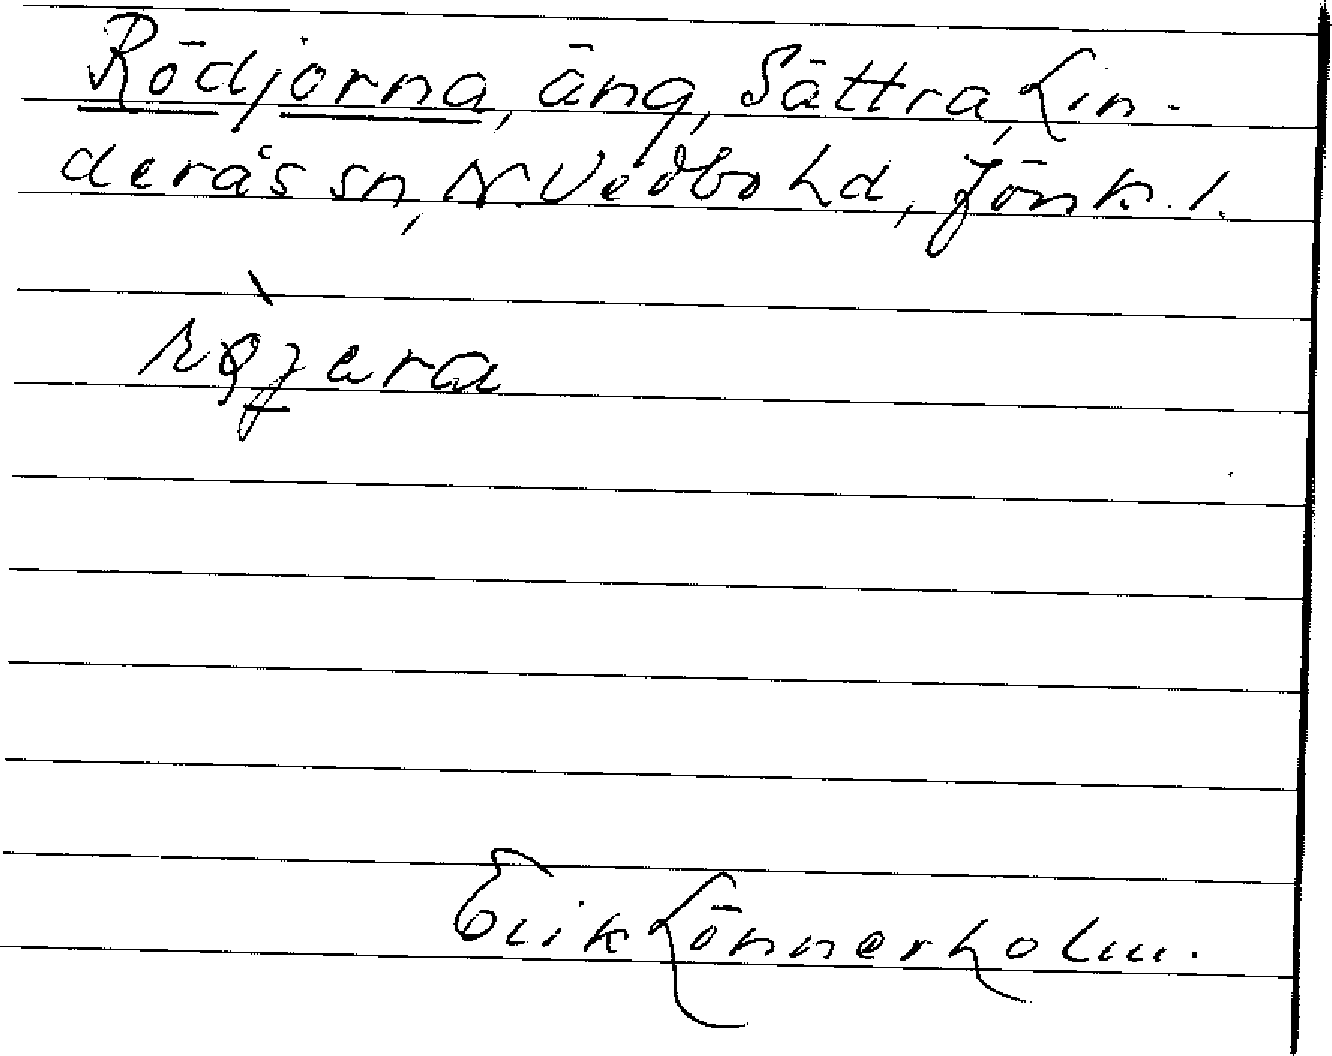 Rödjorna, äng, Sättra, Lin-
derås sn, N. Vedbo hd, Jönk. l.
röjera
Erik Lönnerholm.